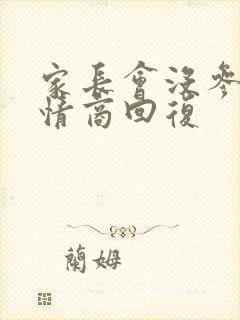 家長會沒參
情商回復
蘭姆